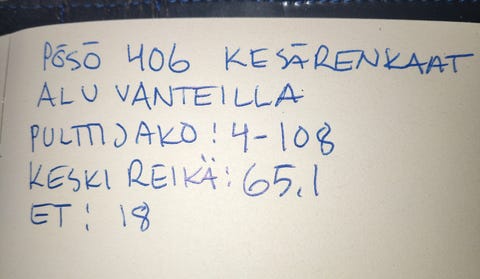 PÖSÖ 406 KESÄRENKAAT
ALUVANTEILLA
PULTTIJAKO: 4-108
KESKIREIKÄ: 65.1
ET: 18